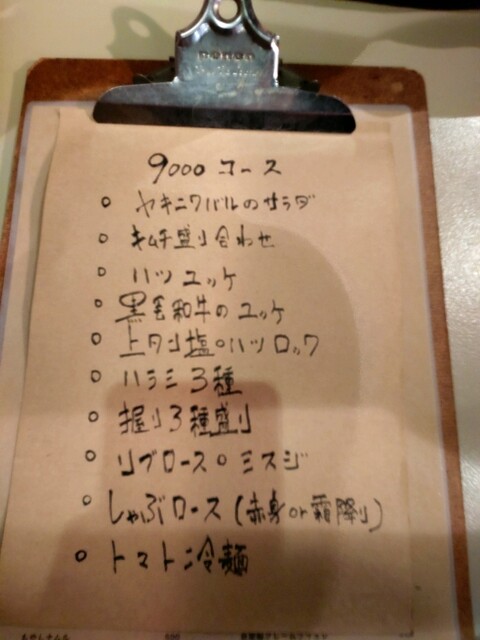 9000 コース
○ ヤキニクバルのサラダ
○ キムチ盛り合わせ
○ ハツユッケ
○ 黒毛和牛のユッケ
○ 上タン塩○ハツロック
○ ハラミ3種
○ 握り3種盛り
○ リブロース○ミスジ
○ しゃぶロース(赤身or霜降り)
○ トマト冷麺